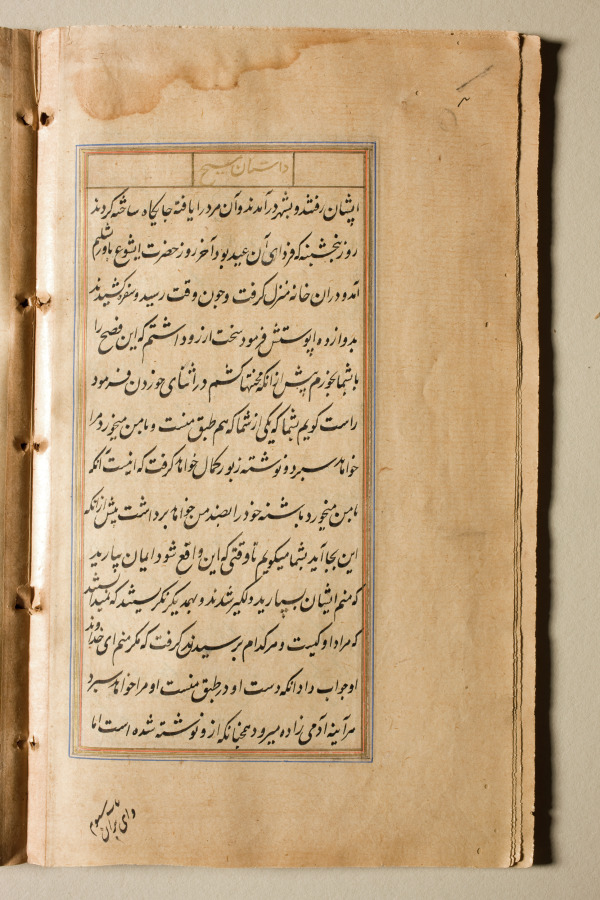 داستان مسیح
ایشان رفتند و بشهر درآمدند و آن مرد را یافته جایگاه ساخته کردند
روز پنجشنبه که فردای آن عید بود آخر روز حضرت ایشوع باورشلیم
آمد و دران خانه منزل گرفت و چون وقت رسید و سفره کشیدند
بدوازده اپوستلش فرمود سخت ارزو داشتم که این فصح را
با شما بخورم پیش ازانکه محنتها کشم در اثنای خوردن فرمود
راست گویم بشما که یکی از شما که هم طبق منست و با من میخورد مرا
خواهد سپرد و نوشته زبور کمال خواهد گرفت که انیست آنکه
بامن میخورد پاشنه خود را بضد من خواهد برداشت پیش ازانکه
این بجا آید بشما میگویم تا وقتی که این واقع شود ایمان بیارید
که منم ایشان بسیار دلگیر شدند و بهمدیگر نگریستند که
که مراد او کیست و هرکدام پرسیدن گرفت که مگر منم ای خداوند
او جواب داد آنکه دست او در طبق منست او مرا خواهد سپرد
هرآینه آدمی زاده میرود همچنانکه ازو نوشته شده است اما
وای بران